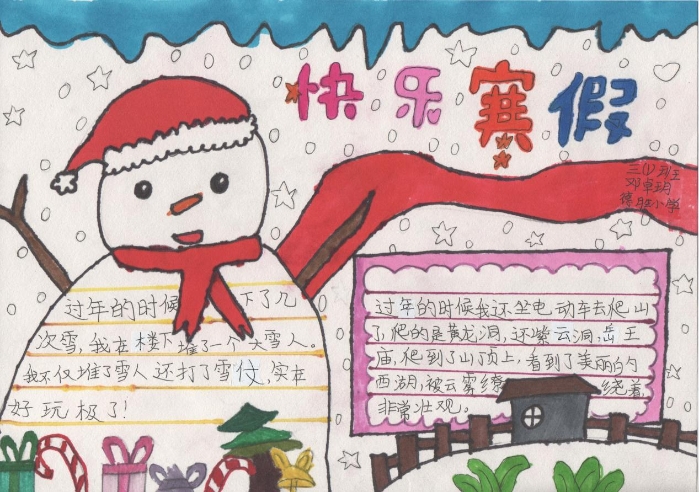 快乐寒假
三(1)班
邓卓玥
德胜小学
过年的时候下了几
次雪,我在楼下堆了一个大雪人。
我不仅堆了雪人还打了雪仗,实在
好玩极了!
过年的时候我还坐电动车去爬山
了,爬的是黄龙洞,还紫云洞,岳王
庙,爬到了山顶上,看到了美丽的
西湖,被云雾缭绕着,
非常壮观。